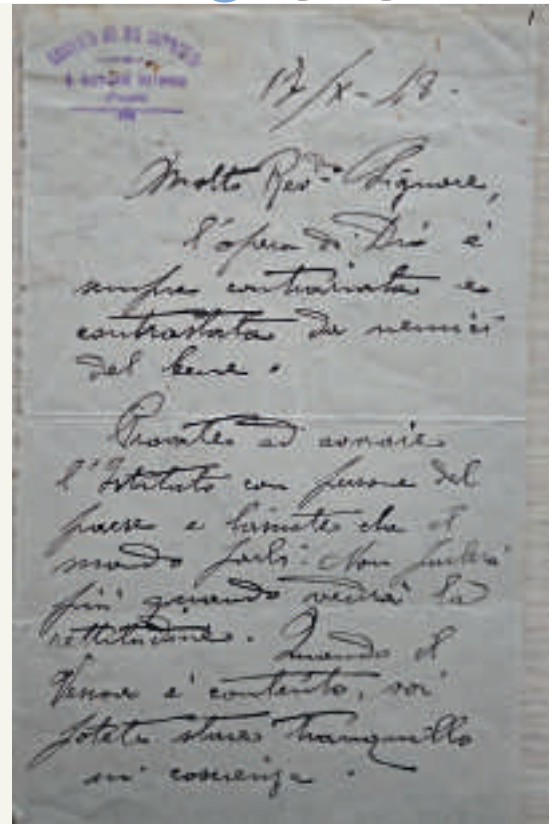 17/X-48.
Molto Rev. Signore,
l'opera di Dio è
sempre contrariata e
contrastata da nemici
del bene.
l'Istituto con persone del
paese e lasciate che il
mondo parli: Non parlerà
più quando vedrà la
rettitudine. Quando il
è contento, voi
potete stare tranquillo
in coscienza.